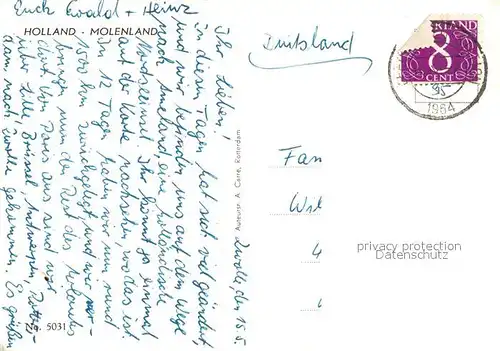 Zwolle, den 15.5.
Ihr Lieben!
In diesen Tagen hat sich viel geändert,
und wir befinden uns auf dem Wege
nach Ameland, eine holländische
Nordseeinsel. Ihr könnt ja einmal
auf der Karte nachsehen, wo das ist.
In 12 Tagen haben wir nun rund
1000 km zurückgelegt und wir ver-
bringen nun den Rest des Urlaubs
dort. Von Paris aus sind wir
über Lille, Brüssel, Antwerpen, Rotter-
dam nach Zwolle gekommen. Es grüßen
Euch Ewald + Heinz
HOLLAND - MOLENLAND
Duitsland
ERLAND
8
CENT
1964
Auteursr. A. Carré, Rotterdam
Fam
privacy protection
DARKO AS.COM
No. 5031